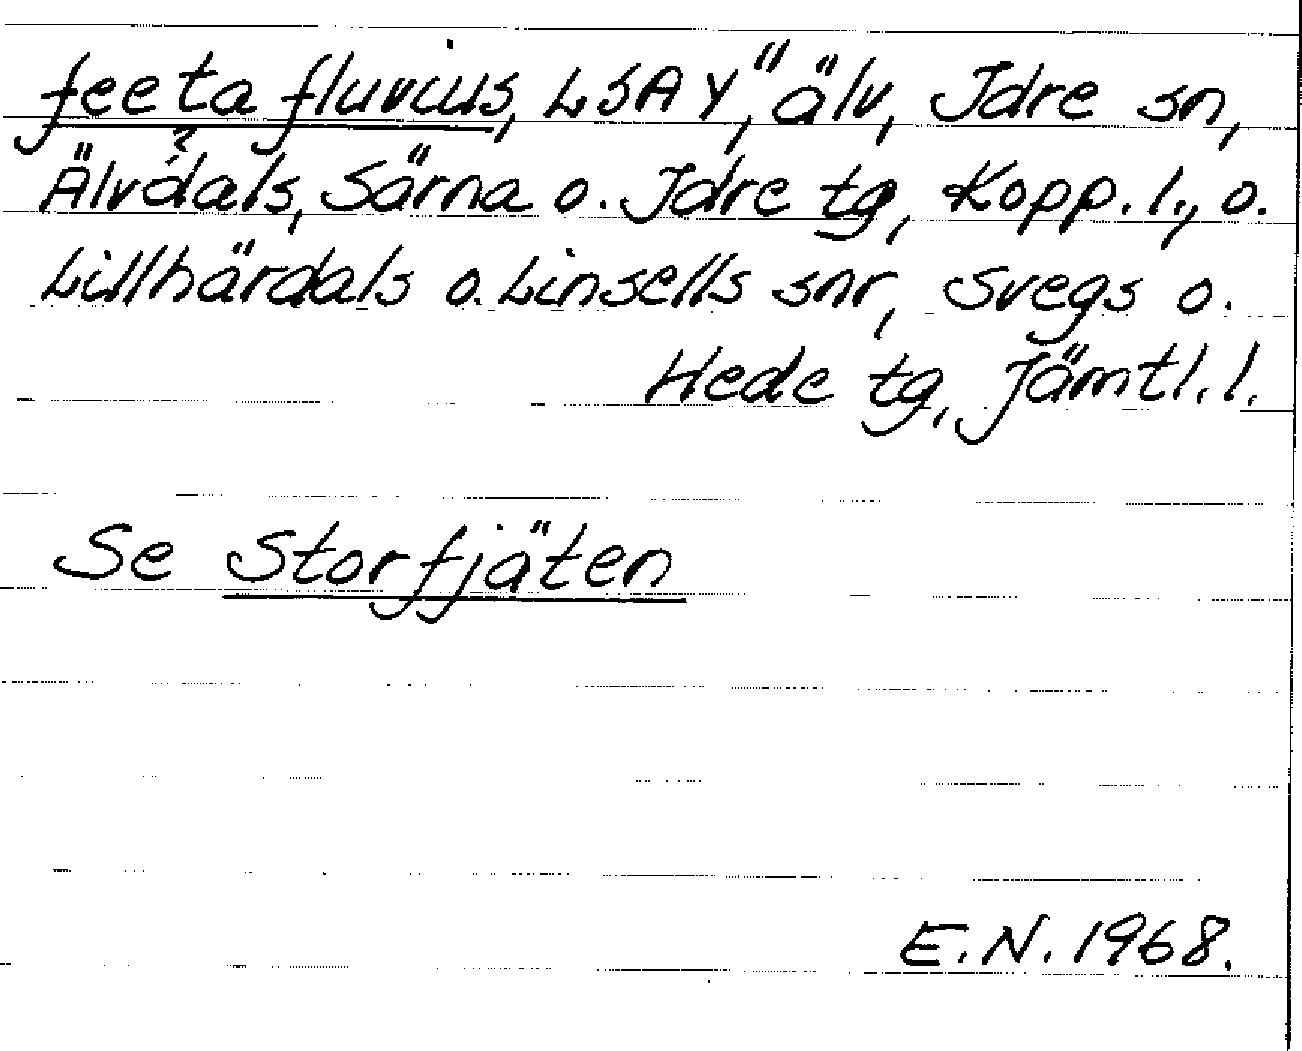 feeta fluvius, LSAY," älv, Idre sn,
Älvdals, Särna o. Idre tg, Kopp. l., o.
Lillhärdals o. Linsells snr, Svegs o.
Hede tg, Jämtl. l.
Se Storfjäten
E.N. 1968.